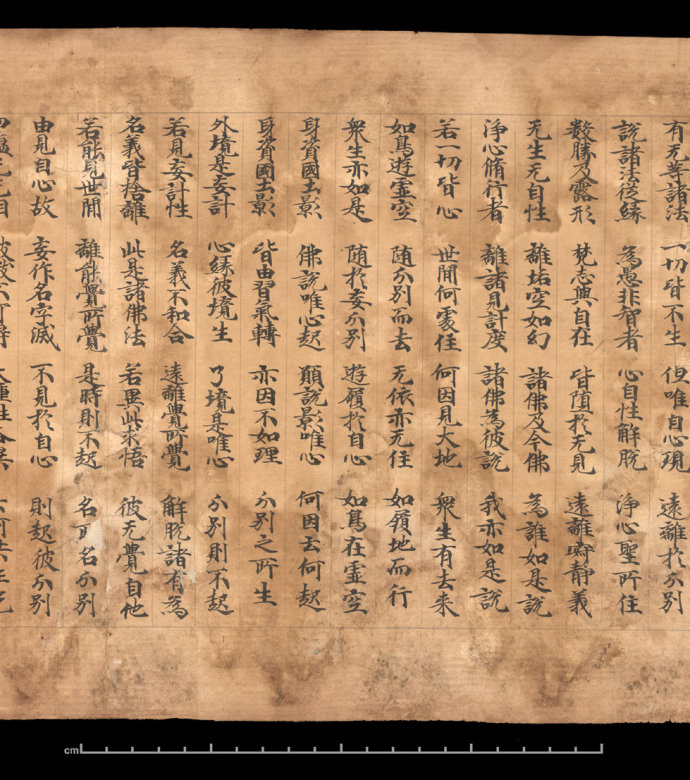 有无等諸法 一切皆不生 但唯自心現 遠離於分別
說諸法從緣 為愚非智者 心自性解脫 淨心聖所住
數勝及露形 梵志與自在 皆墮於无見 遠離寂靜義
无生无自性 離垢空如幻 諸佛及今佛 為誰如是說
淨心脩行者 離諸見計度 諸佛為彼說 我亦如是說
若一切皆心 世間何處住 何因見大地 衆生有去来
如鳥遊虛空 随分別而去 无依亦无住 如履地而行
衆生亦如是 随於妄分別 遊履於自心 如鳥在虛空
身資國土影 佛說唯心起 願說影唯心 何因云何起
身資國土影 皆由習氣轉 亦因不如理 分別之所生
外境是妄計 心緣彼境生 了境是唯心 分別則不起
若見妄計性 名義不和合 遠離覺所覺 解脫諸有為
名義皆捨離 此是諸佛法 若異此求悟 彼无覺自他
若能見世間 離能覺所覺 是時則不起 名所名分別
由見自心故 妄作名字滅 不見於自心 則起彼分別
cm